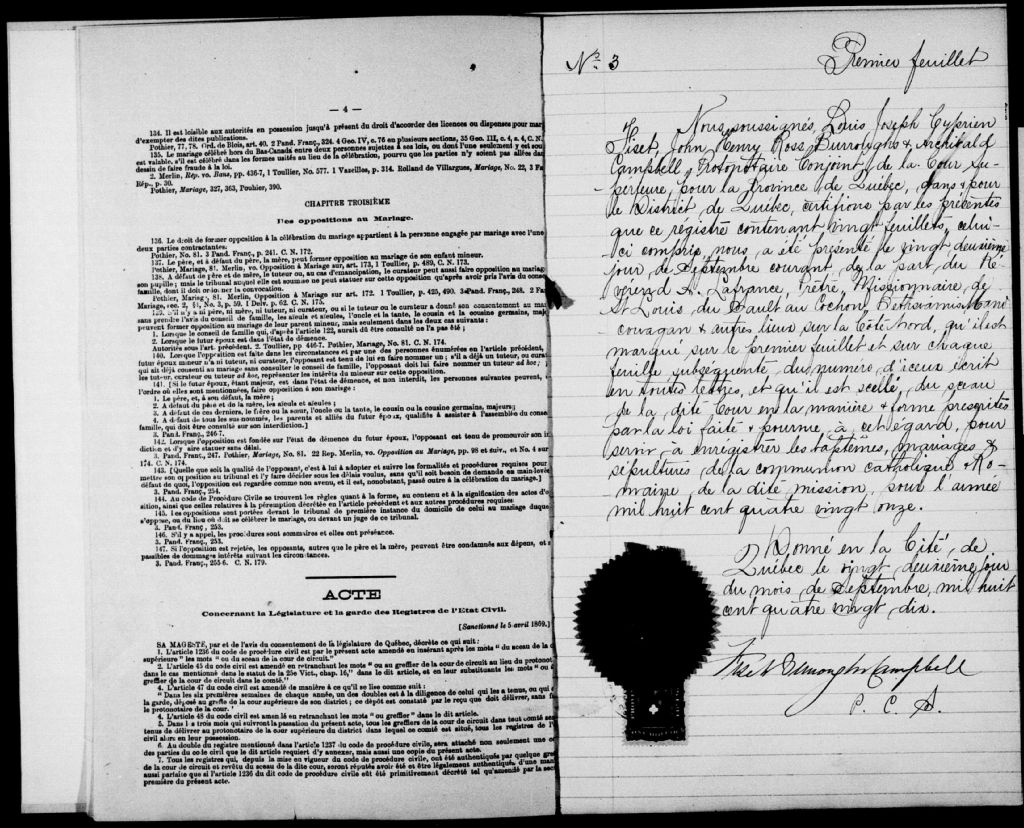 — 4 —
134. Il est loisible aux autorités en possession jusqu'à présent du droit d'accorder des licences ou dispenses pour mar
d'exempter des dites publications.
Pothier, 77, 78. Ord. de Blois, art. 40. 2 Pand. Franç., 324. 4 Geo. IV, c. 76 en plusieurs sections, 35 Geo. III, c. 4, s. 4, C. N.
135. Le mariage célébré hors du Bas-Canada entre deux personnes sujettes à ses lois, ou dont l'une seulement y est sou
est valable, s'il est célébré dans les formes usités au lieu de la célébration, pourvu que les parties n'y soient pas allées dan
dessin de faire fraude à la loi.
2. Merlin, Rép. vo. Bans, pp. 436-7, 1 Toullier, No. 577. 1 Vazeilles, p. 314. Rolland de Villargues, Mariage, No. 22, 3 Fa
Rép., p. 30.
Pothier, Mariage, 327, 363, Pouhier, 390.
CHAPITRE TROISIÈME
Des oppositions au Mariage.
136. Le droit de former opposition à la célébration du mariage appartient à la personne engagée par mariage avec l'une
deux parties contractantes.
Pothier, No. 81. 3 Pand. Franç., p. 241. C. N. 172.
137. Le père, et à défaut du père, la mère, peut former opposition au mariage de son enfant mineur.
Pothier, Mariage, 81. Merlin, vo. Opposition à Mariage sur, art. 173, 1 Toullier, p. 489, C. N. 173.
138. A défaut de père et de mère, le tuteur ou, au cas d'émancipation, le curateur peut aussi faire opposition au mariag
son pupille; mais le tribunal auquel elle est soumise ne peut statuer sur cette opposition qu'après avoir pris l'avis du conse
famille, dont il doit ordonner la convocation.
Pothier, Mariage, 81. Merlin, Opposition à Mariage sur art. 172. 1 Toullier, p. 425, 490. 3 Pand. Franç., 248. 2 Fa
Mariage, sec. 2, §1, No. 3, p. 59. 1 Delv. p. 62. C. N. 175.
139. S'il n'y a ni père, ni mère, ni tuteur, ni curateur, ou si le tuteur ou le curateur a donné son consentement au ma
sans prendre l'avis du conseil de famille, les aïeuls et aïeules, l'oncle et la tante, le cousin et la cousine germains, maje
peuvent former opposition au mariage de leur parent mineur, mais seulement dans les deux cas suivants:
1. Lorsque le conseil de famille qui, d'après l'article 122, aurait dû être consulté ne l'a pas été;
2. Lorsque le futur époux est dans l'état de démence.
Autorités sous l'art. précédent. 2. Toullier, pp. 446-7. Pothier, Mariage, No. 81. C. N. 174.
140. Lorsque l'opposition est faite dans les circonstances et par une des personnes énumérées en l'article précédent,
futur époux mineur n'a ni tuteur, ni curateur, l'opposant est tenu de lui en faire nommer un; s'il a déjà un tuteur, ou curat
qui ait déjà consenti au mariage sans consulter le conseil de famille, l'opposant doit lui faire nommer un tuteur ad hoc;
les tuteur, curateur ou tuteur ad hoc, représenter les intérêts du mineur sur cette opposition.
141. [Si le futur époux, étant majeur, est dans l'état de démence, et non interdit, les personnes suivantes peuvent,
l'ordre où elles sont mentionnées, faire opposition à son mariage:
1. Le père, et, à son défaut, la mère;
2. A défaut du père et de la mère, les aïeuls et aïeules;
3. A défaut de ces derniers, le frère ou la sœur, l'oncle ou la tante, le cousin ou la cousine germains, majeurs;
4. A défaut de tous les sus-nommés, les parents et alliés du futur époux, qualifiés à assister à l'assemblée du conse
famille, qui doit être consulté sur son interdiction.]
3. Pand. Franç., 246-7.
142. Lorsque l'opposition est fondée sur l'état de démence du futur époux, l'opposant est tenu de promouvoir son in
diction et d'y faire statuer sans délai.
3. Pand. Franç., 247. Pothier, Mariage, No. 81. 22 Rep. Merlin, vo. Opposition au Mariage, pp. 98 et suiv., et No. 4 sur
174. C. N. 174.
143. [Quelle que soit la qualité de l'opposant, c'est à lui à adopter et suivre les formalités et procédures requises pour
mettre son opposition au tribunal et l'y faire décider sous les délais voulus, sans qu'il soit besoin de demande en main-levé
défaut de quoi, l'opposition est regardée comme non avenu, et il est, nonobstant, passé outre à la célébration du mariage.]
3. Pand. Franç., 254.
144. Au code de Procédure Civile se trouvent les règles quant à la forme, au contenu et à la signification des actes d'o
sition, ainsi que celles relatives à la péremption décrétée en l'article précédent et aux autres procédures requises.
145. Les oppositions sont portées devant le tribunal de première instance du domicile de celui au mariage duque
s'oppose, ou du lieu où doit se célébrer le mariage, ou devant un juge de ce tribunal.
3. Pand. Franç., 253.
146. S'il y a appel, les procédures sont sommaires et elles ont préséance.
3. Pand. Franç., 253.
147. Si l'opposition est rejetée, les opposants, autres que le père et la mère, peuvent être condamnés aux dépens, et s
passibles de dommages intérêts suivant les circonstances.
3. Pand. Franç., 255-6. C. N. 179.
ACTE
Concernant la Législature et la garde des Registres de l'Etat Civil.
[Sanctionné le 5 avril 1869.]
SA MAGESTÉ, par et de l'avis du consentement de la législature de Québec, décrète ce qui suit:
1. L'article 1236 du code de procédure civil est par le présent acte amendé en insérant après les mots "du sceau de la c
supérieure" les mots "ou du sceau de la cour de circuit."
2. L'article 45 du code civil est amendé en retranchant les mots "ou au greffier de la cour de circuit au lieu du protonot
dans le cas mentionné dans le statut de la 25e Vict., chap. 16," dans le dit article, et en leur substituant les mots "ou
greffier de la cour de circuit dans le comté."
4. L'article 47 du code civil est amendé de manière à ce qu'il se lise comme suit:
"Dans les six premières semaines de chaque année, un des doubles est à la diligence de celui qui les a tenus, ou qui e
la garde, déposé au greffe de la cour supérieure de son district; ce dépôt est constaté par le reçu que doit délivrer, sans fa
le protonotaire de la cour.'
4. L'article 48 du code civil est amendé en retranchant les mots "ou greffier" dans le dit article.
5. Dans les trois mois qui suivront la passation du présent acte, tous les greffiers de la cour de circuit dans tout comté ser
tenus de délivrer au protonotaire de la cour supérieure du district dans lequel ce comté est situé, tous les registres de l'
civil alors en leur possession.
6. Au double du registre mentionné dans l'article 1237 du code de procédure civile, sera attaché non seulement une co
des parties du code civil que le dit article requiert d'y annexer, mais aussi une copie du présent acte.
7. Tous les registres qui, depuis la mise en vigueur du code de procédure civile, ont été authentiqués par quelque gre
de la cour de circuit et revêtu du sceau de la dite cour, seront réputés avoir été et être légalement authentiqués, d'une man
aussi parfaite que si l'article 1236 du dit code de procédure civile eût été primitivement décrété tel qu'amendé par la sec
première du présent acte.
No. 3
Premier feuillet
Nous soussignés, Louis Joseph Cyprien
Fiset, John Henry Ross Burroughs & Archibald
Campbell, Protonotaire Conjoint de la Cour Su-
perieure, pour la Province de Québec, dans & pour
le District de Québec, certifions par les présentes
que ce régistre contenant vingt feuillets, celui-
ci compris, nous a été présenté le vingt deuxième
jour de Septembre courant, de la part du Ré-
verend A. Lafrance, Prêtre, Missionnaire, de
St Louis du Sault au Cochon, Betsiamis, Mani
couagan & autres lieux sur la Côte Nord, qu'il est
marqué sur le premier feuillet et sur chaque
feuille subséquente du numéro d'iceux écrit
en toutes lettres, et qu'il est scellé, du sceau
de la dite Cour en la manière & forme prescrites
par la loi faite & pourvue, à cet égard, pour
servir à enrégistrer les baptêmes, mariages &
sépultures de la communion Catholique & Ro-
maine, de la dite mission, pour l'année
mil huit cent quatre vingt onze.
Donné en la Cité, de
Québec le vingt deuxième jour
du mois de Septembre, mil huit
cent quatre vingt dix.
Fiset Burroughs Campbell
P. C. S.